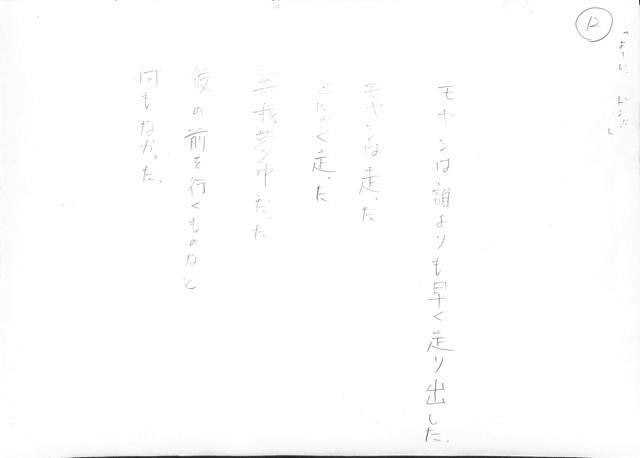 12
「よーい、ドン!!」
モヤシは誰よりも早く走り出した.
モヤシは走った
とにかく走った
無我夢中だった
彼の前を行くものなど
何もなかった.